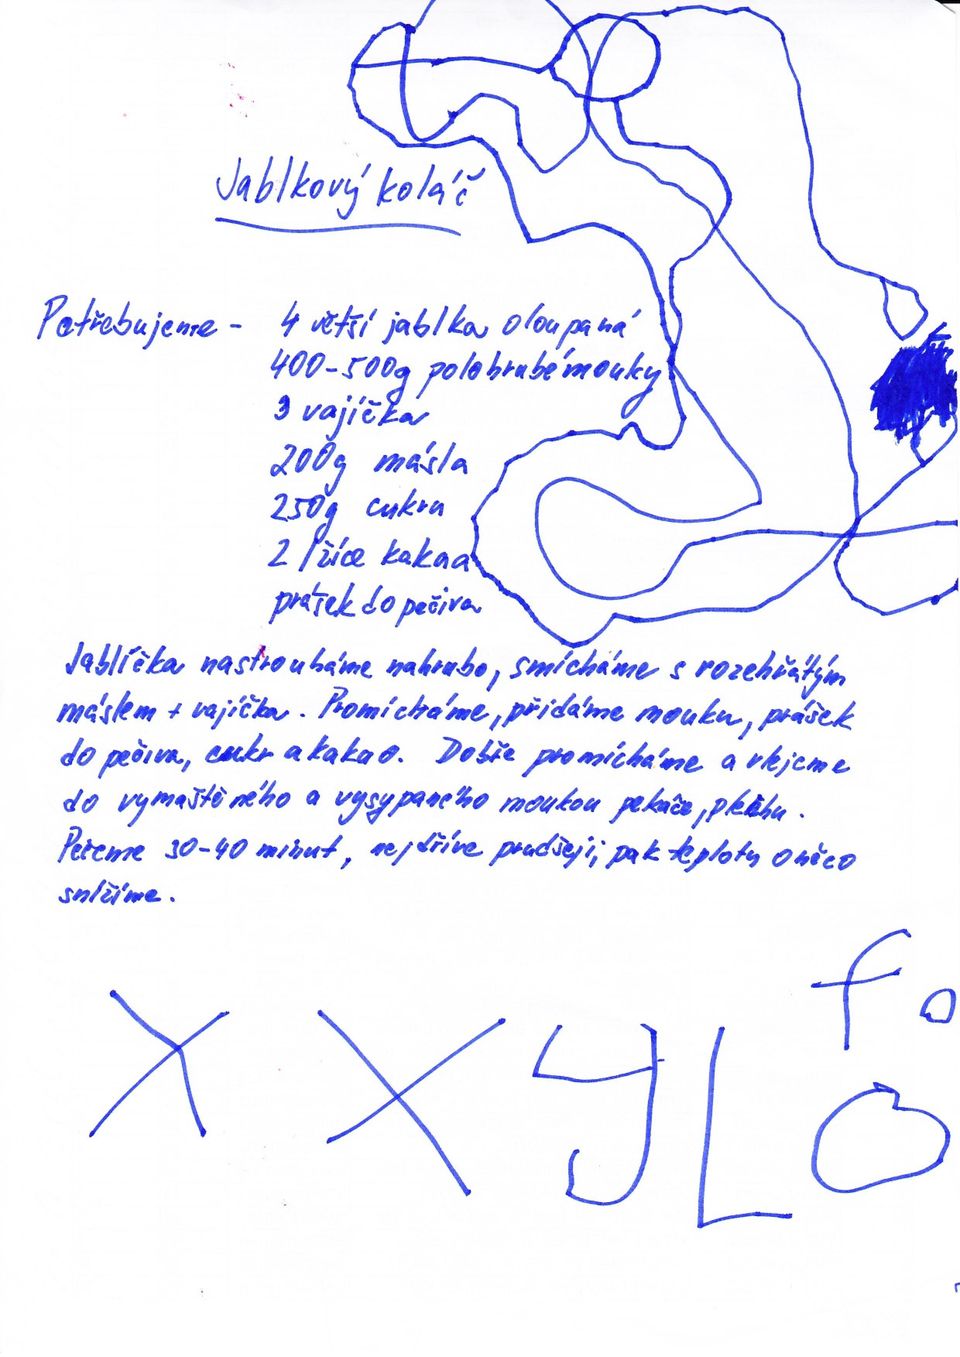 Jablkový koláč
Potřebujeme - 4 větší jablka oloupaná
400-500g polohrubé mouky
3 vajíčka
200g másla
250g cukru
2 lžíce kakaa
prášek do pečiva
Jablíčka nastrouháme nahrubo, smícháme s rozehřátým
máslem + vajíčka. Promícháme, přidáme mouku, prášek
do pečiva, cukr a kakao. Dobře promícháme a vlejeme
do vymaštěného a vysypaného moukou pekáče, plechu.
Pečeme 30-40 minut, nejdříve prudšeji, pak teplotu o něco
snížíme.
fo
X X y L O